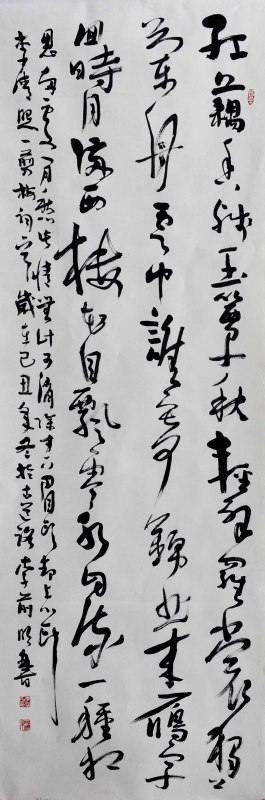 紅藕香殘玉簟秋輕解羅裳獨上
蘭舟雲中誰寄錦書來雁字
回時月滿西樓花自飄零水自流一種相
思兩處閒愁此情無計可消除才下眉頭卻上心頭
李清照一剪梅詞一首歲在己丑年冬於古 李前 書